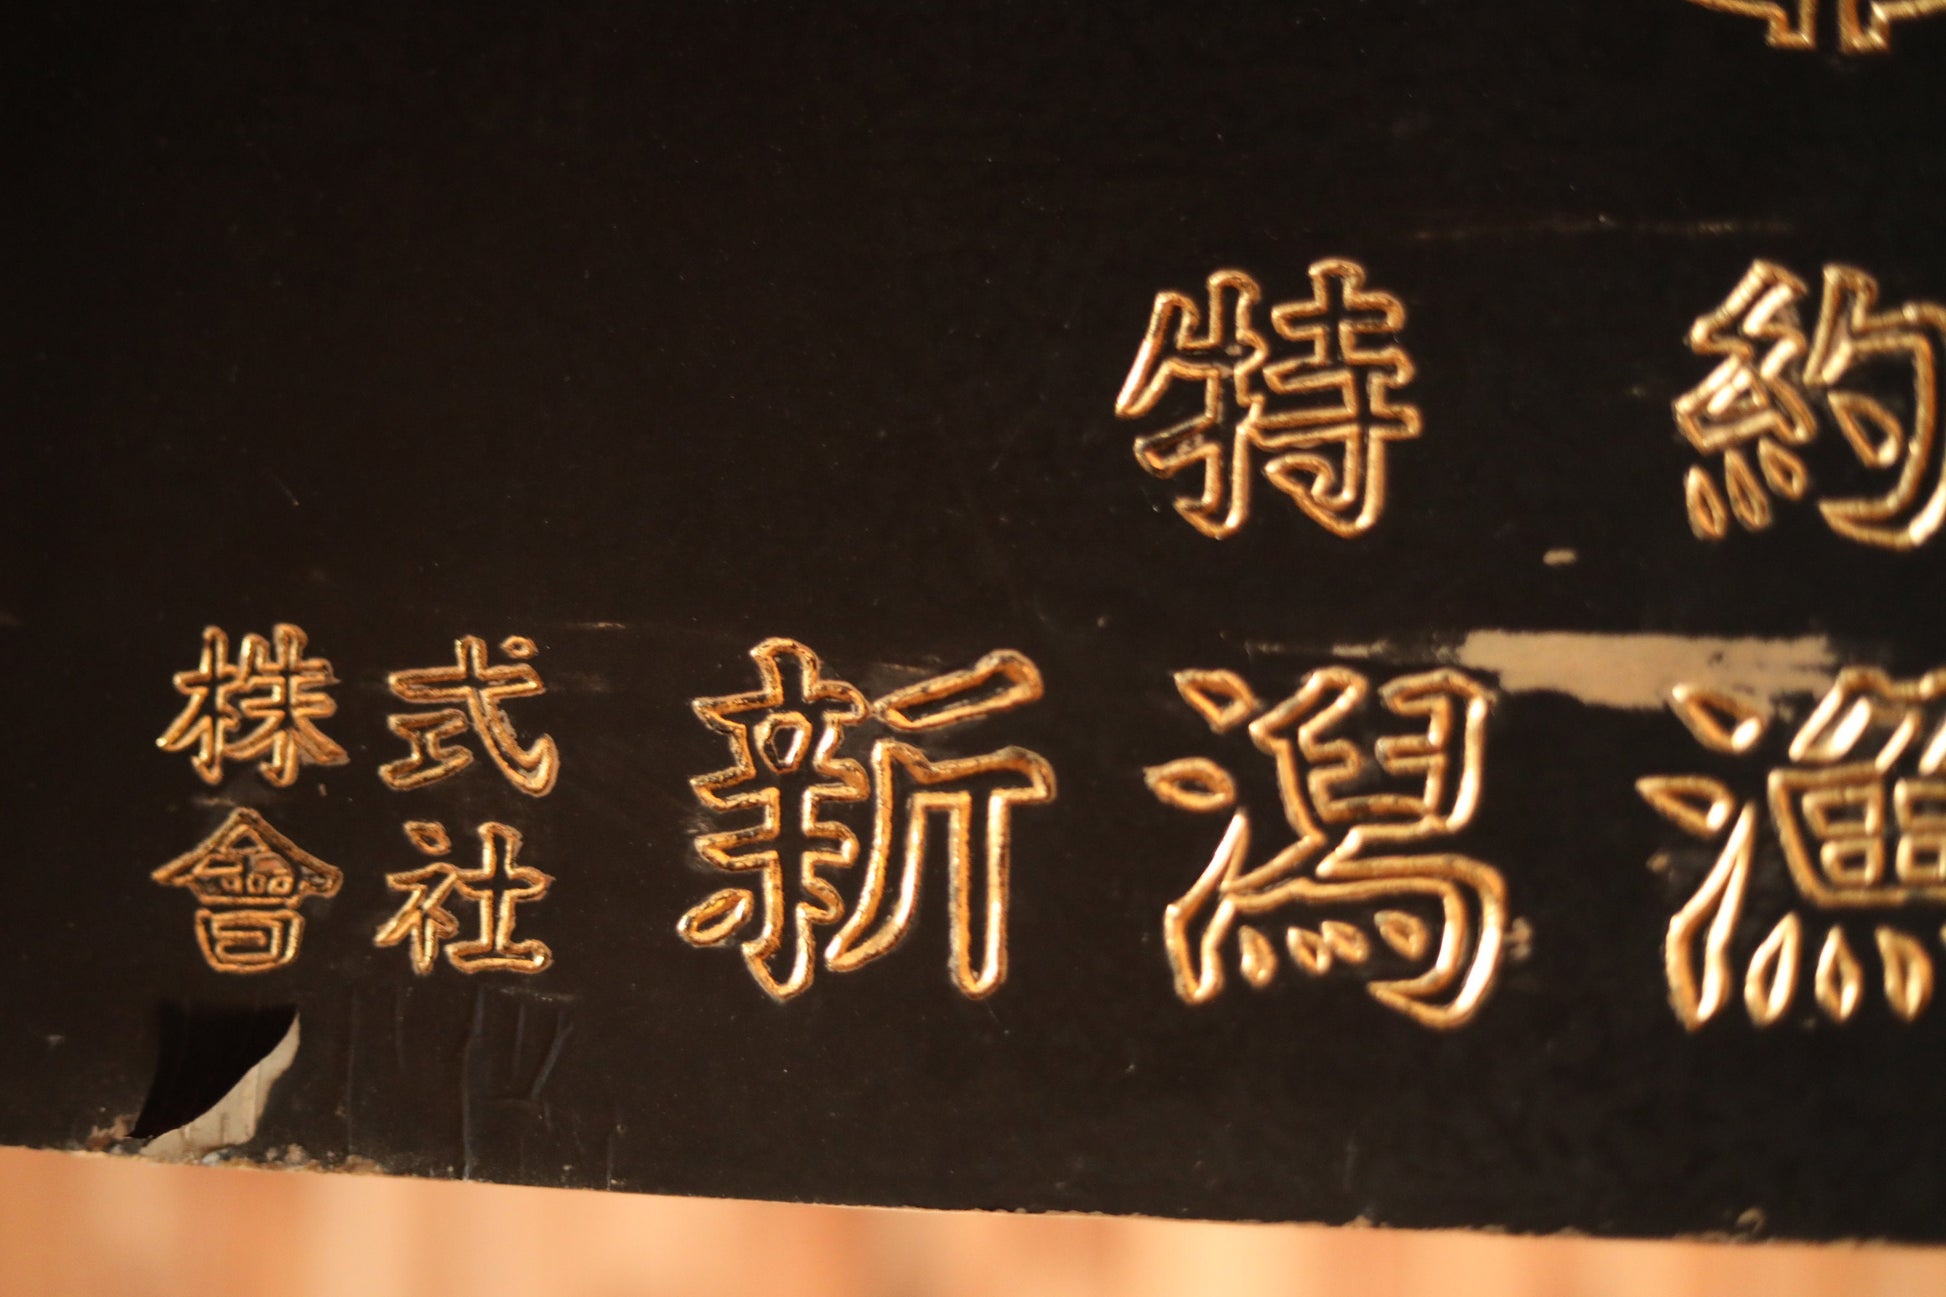 特約
株式
會社
新潟漁